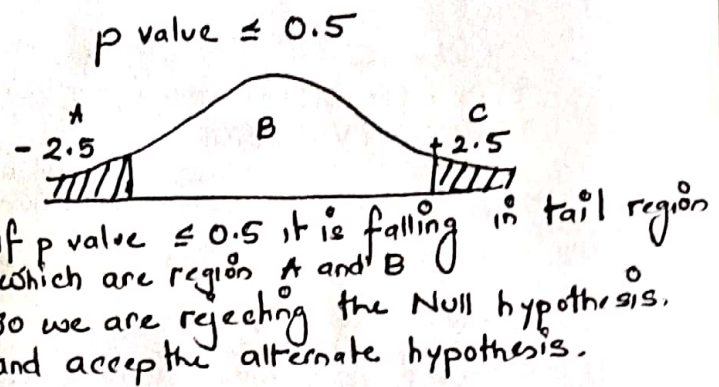 p value ≤ 0.5
A
B
C
- 2.5
+ 2.5
if p value ≤ 0.5 it is falling in tail region
which are region A and B
so we are rejecting the Null hypothesis.
and accep the alternate hypothesis.